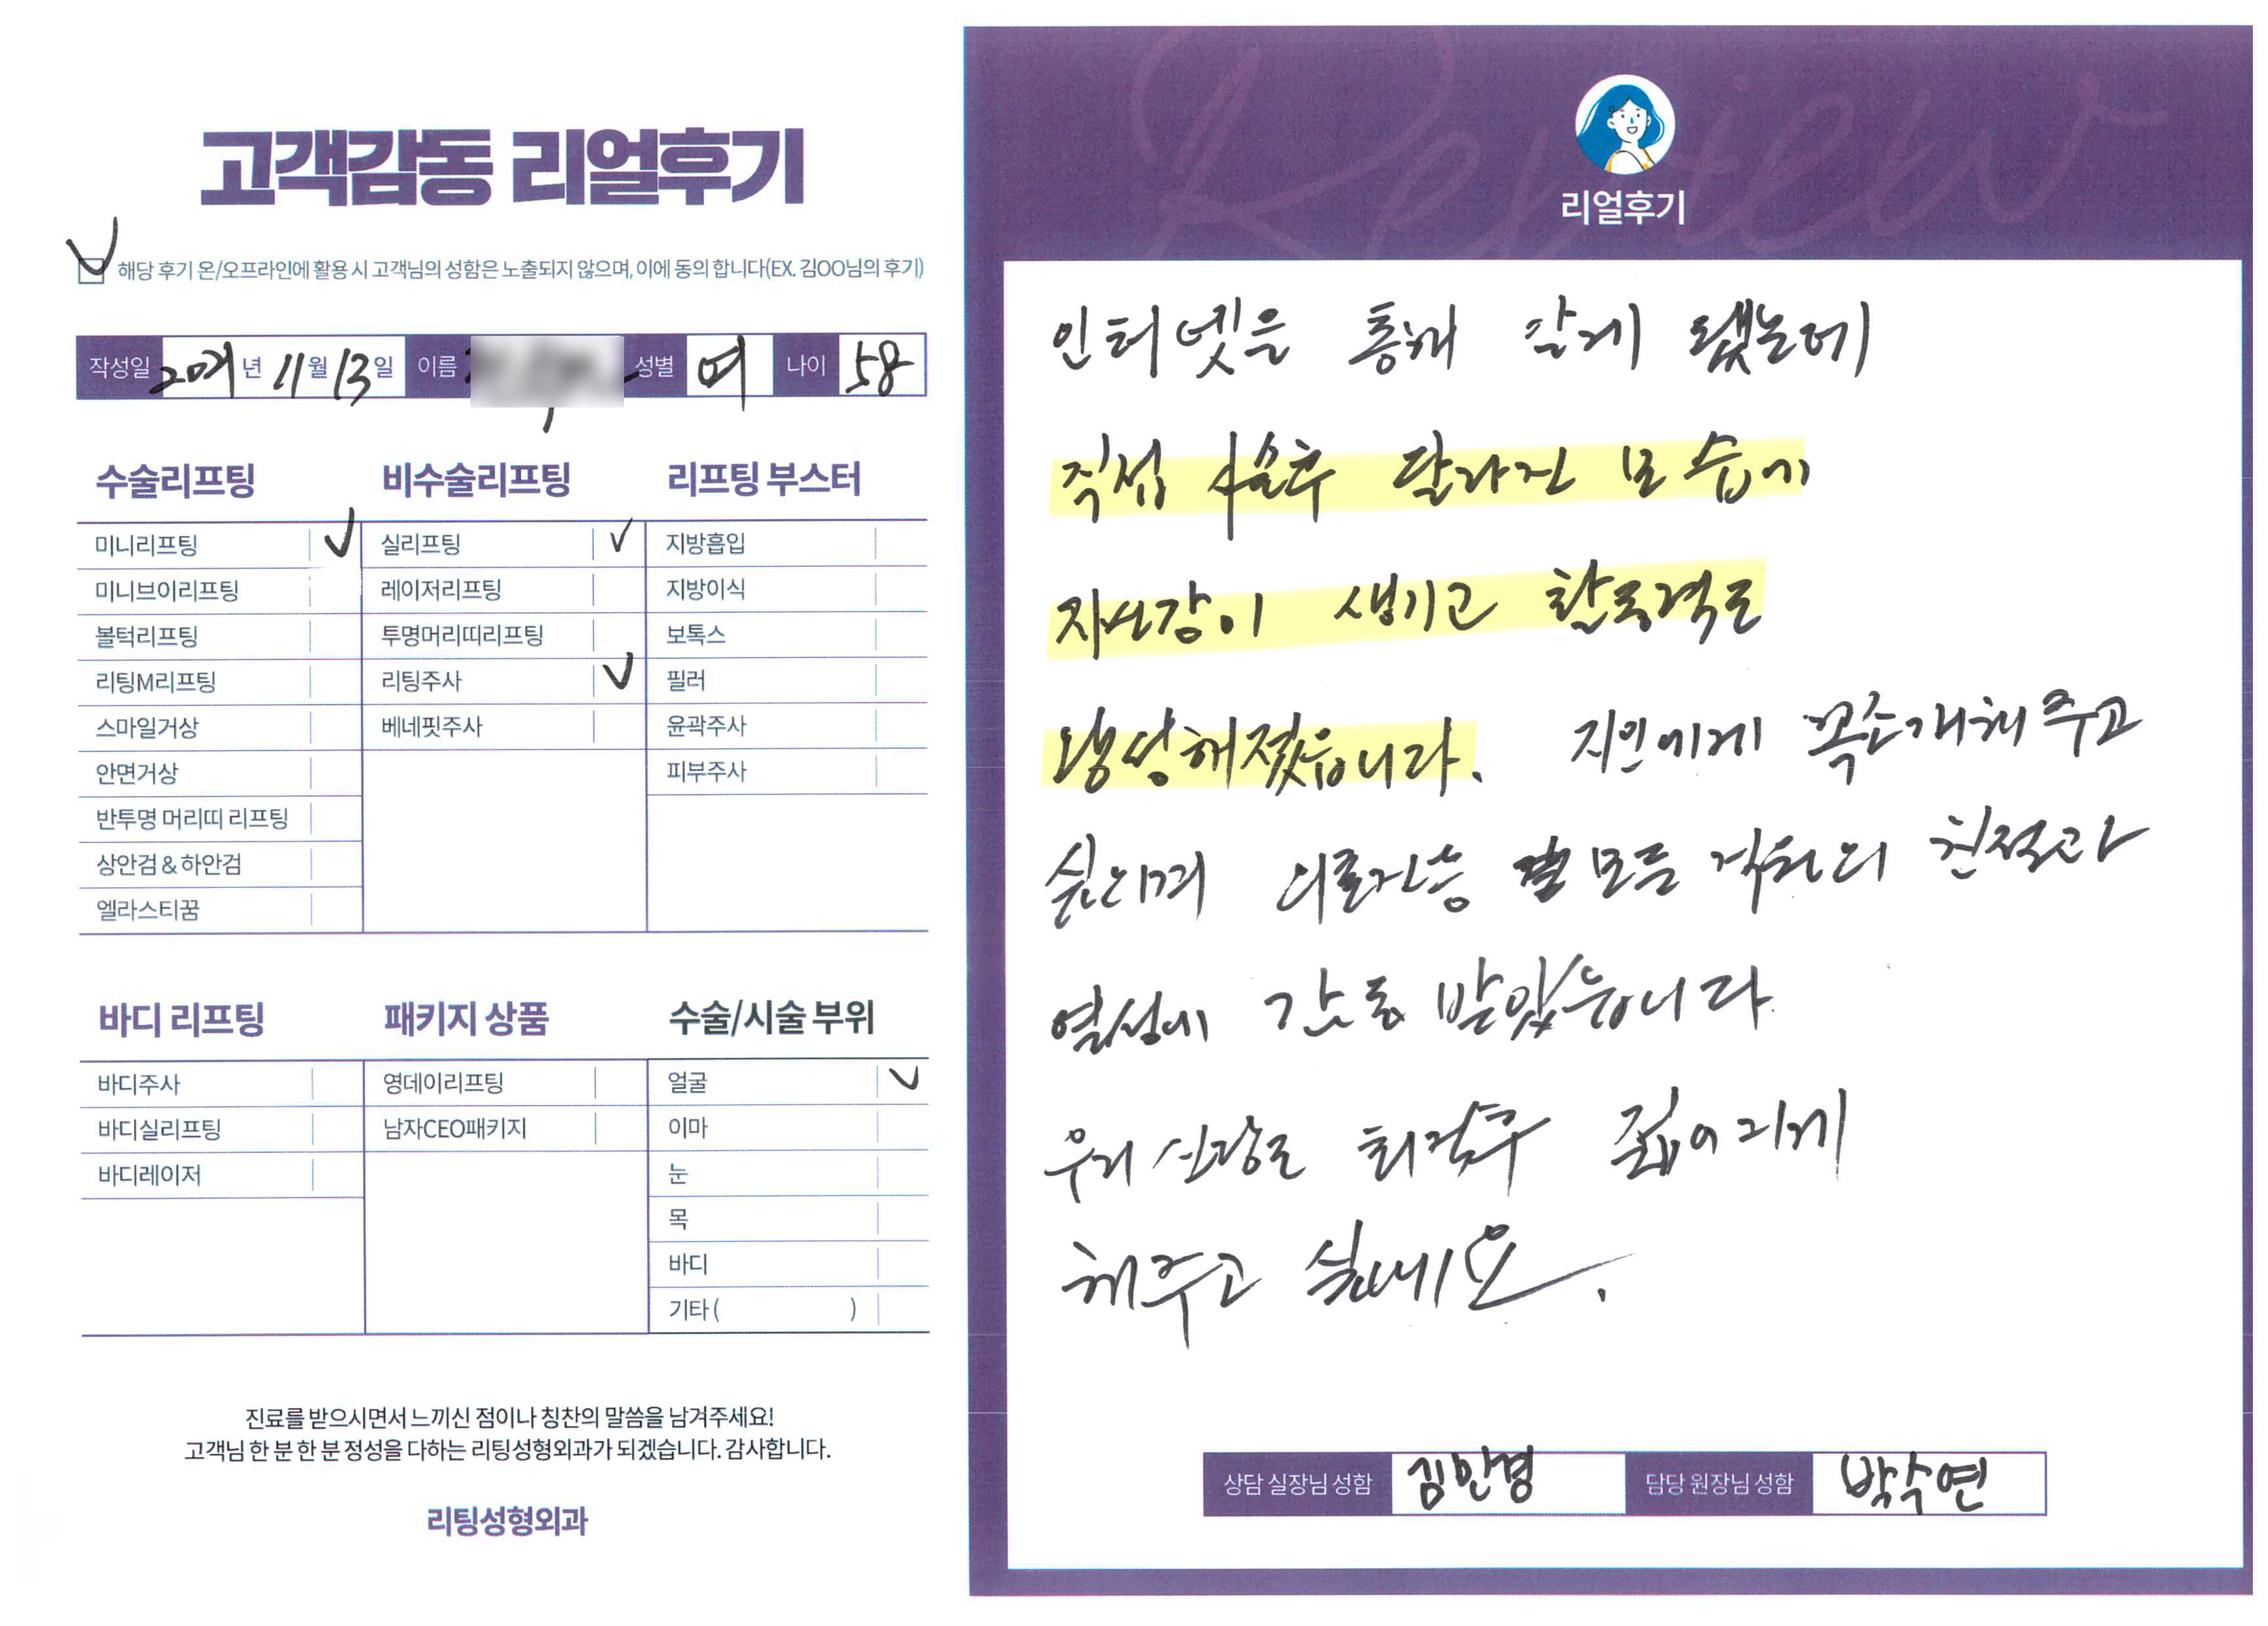 고객감동 리얼후기
해당 후기 온/오프라인에 활용 시 고객님의 성함은 노출되지 않으며, 이에 동의 합니다(EX. 김OO님의 후기)
작성일 년 11월 13일 이름 성별 여 나이 58
수술리프팅
미니리프팅
미니브이리프팅
볼턱리프팅
리팅M리프팅
스마일거상
안면거상
반투명 머리띠 리프팅
상안검 & 하안검
엘라스티꿈
비수술리프팅
실리프팅
레이저리프팅
투명머리띠리프팅
리팅주사
베네핏주사
리프팅 부스터
지방흡입
지방이식
보톡스
필러
윤곽주사
피부주사
바디 리프팅
바디주사
바디실리프팅
바디레이저
패키지 상품
영데이리프팅
남자CEO패키지
수술/시술 부위
얼굴
이마
눈
목
바디
기타 ( )
진료를 받으시면서 느끼신 점이나 칭찬의 말씀을 남겨주세요!
고객님 한 분 한 분 정성을 다하는 리팅성형외과가 되겠습니다. 감사합니다.
리팅성형외과
Review
리얼후기
인터넷을 통해 알게 됐는데
직접 시술후 달라진 모습에
자신감이 생기고 활동력도
왕성해졌습니다. 지인에게 꼭소개해주고
싶네 모든 직원의 친절과
열성에 감동 받았습니다
우리 신랑도 젊어지게
해주고 싶네요.
상담 실장님 성함 김민경 담당 원장님 성함 박수연